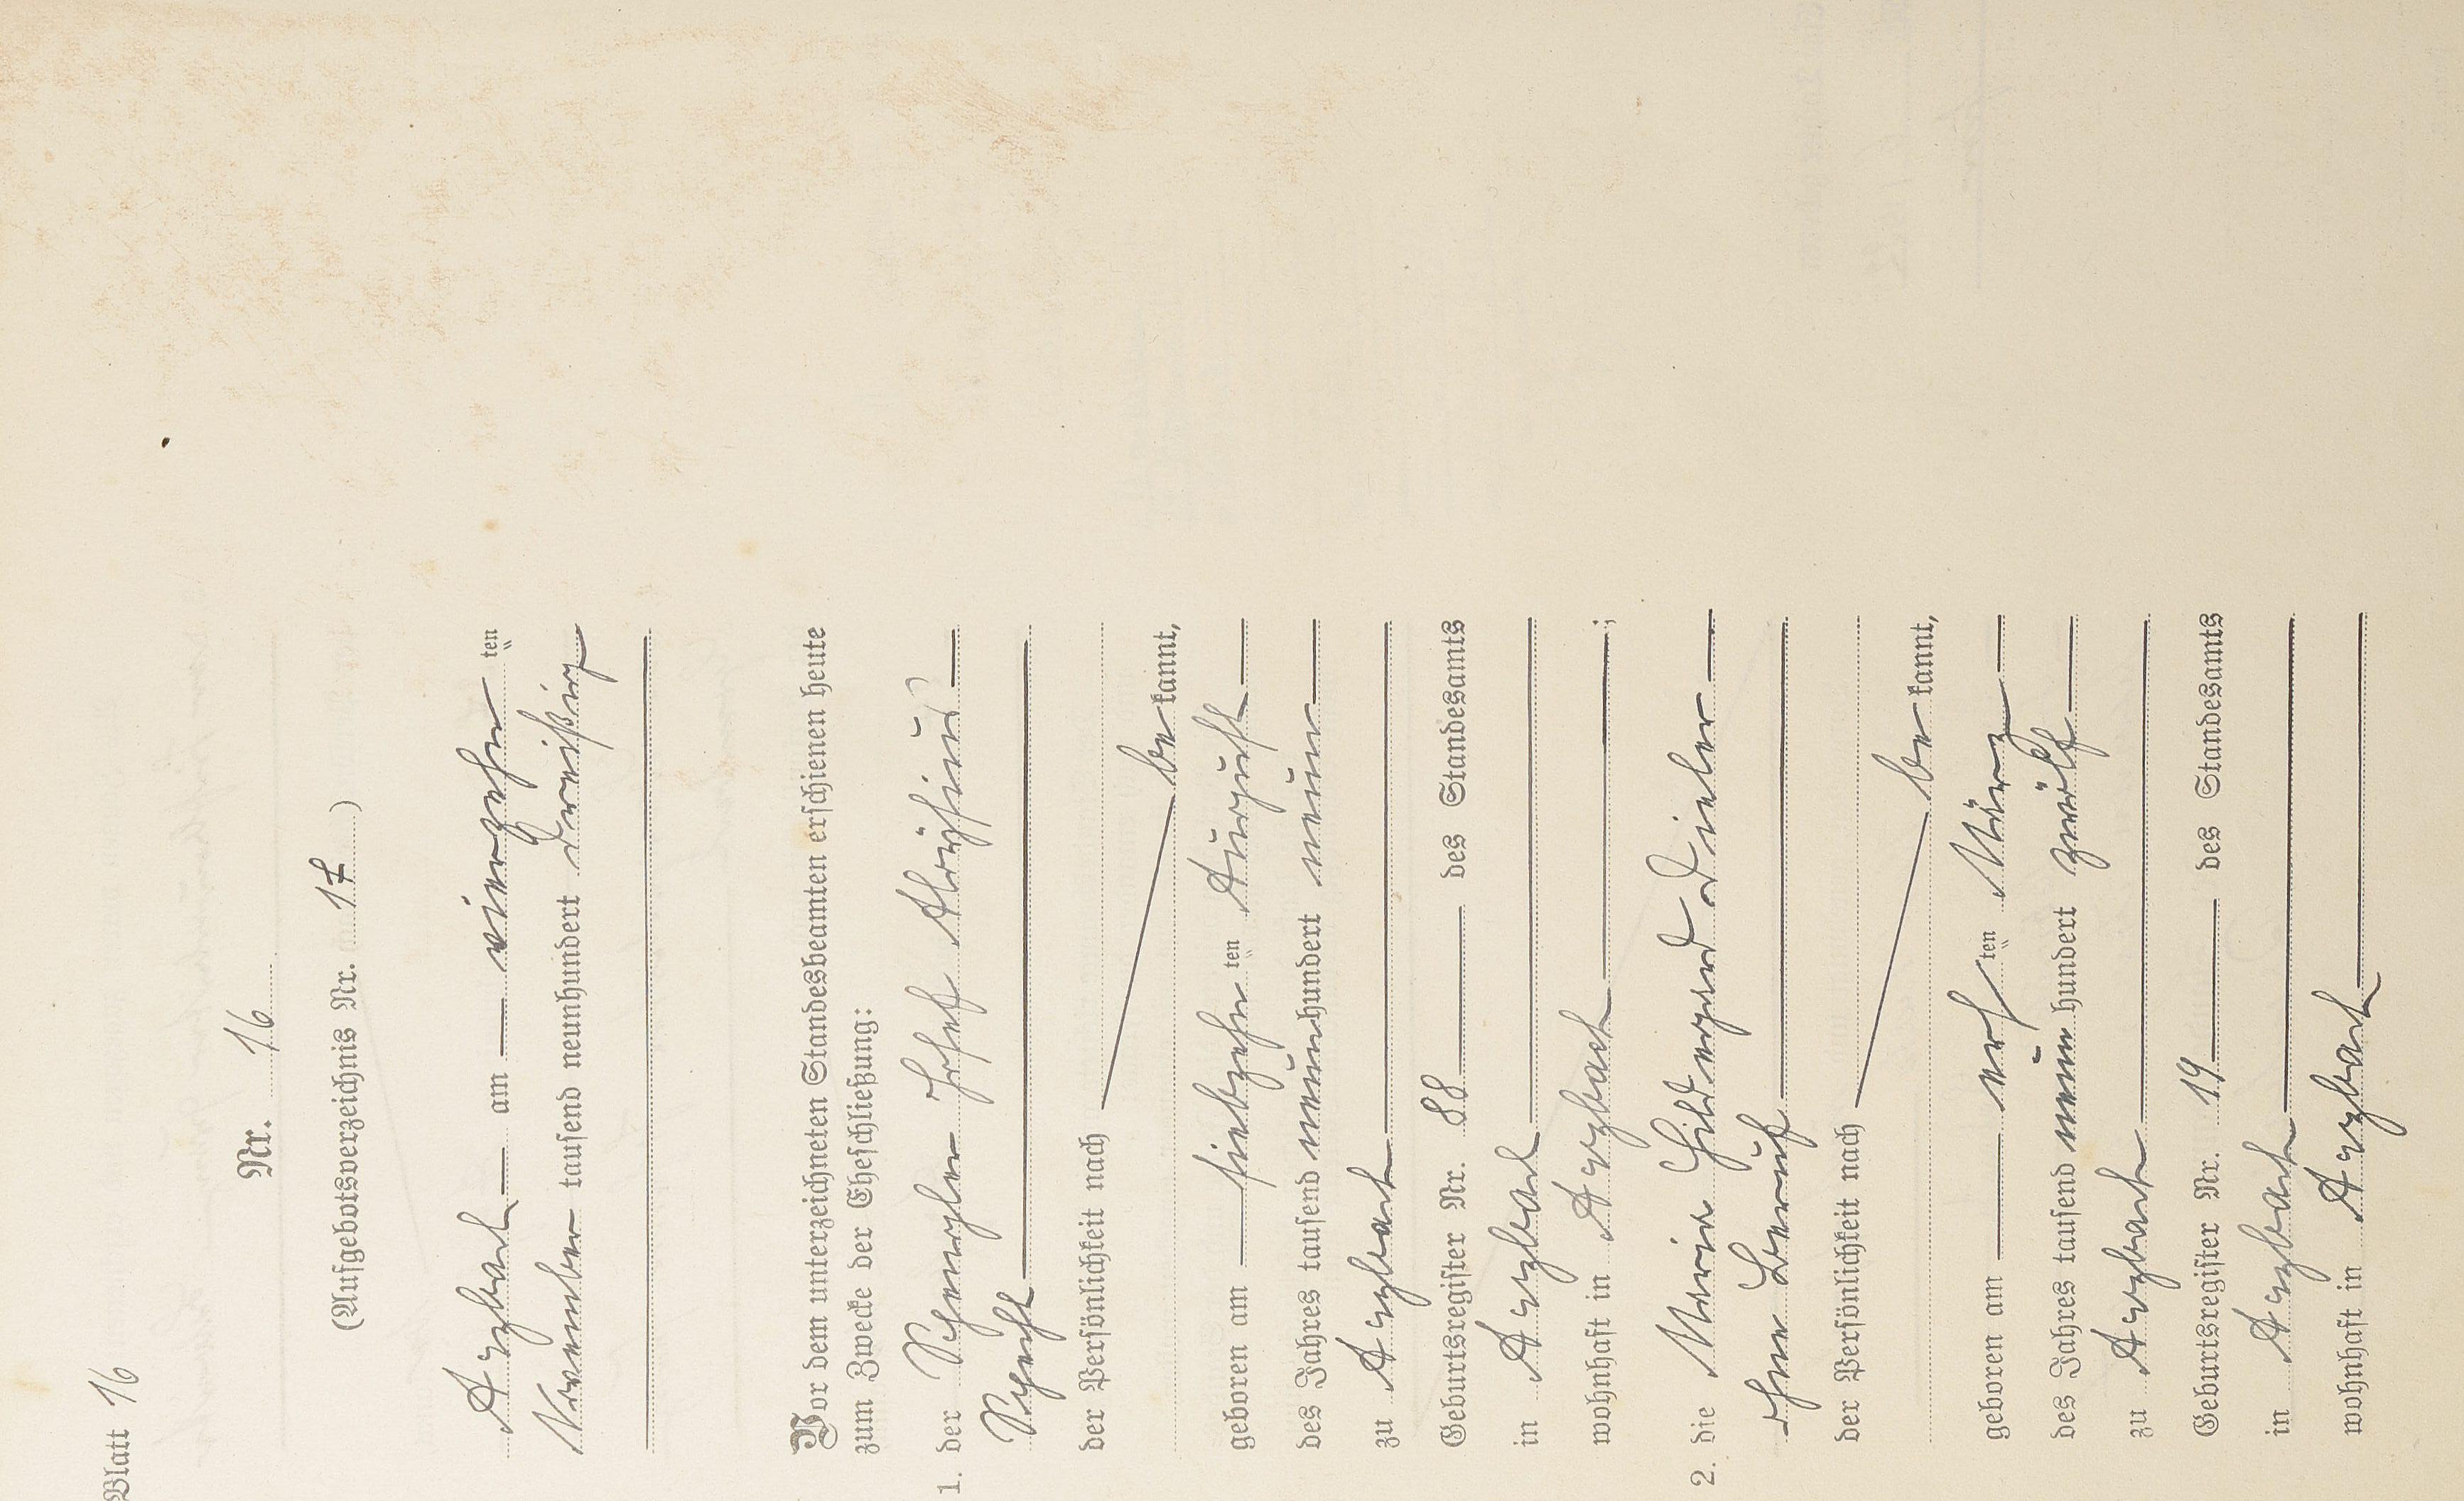 Blatt 16
Nr. 16
(Aufgebotsverzeichnis Nr. 17)
Arzbach — am — vierzehn ten
November tausend neunhundert dreißig
Vor dem unterzeichneten Standesbeamten erschienen heute
zum Zwecke der Eheschließung:
1. der Schengler Josef Aloysius
Specht
der Persönlichkeit nach
be kannt,
geboren am — siebzehn ten August
des Jahres tausend neunhundert neun
zu Arzbach
Geburtsregister Nr. 88 des Standesamts
in Arzbach
wohnhaft in Arzbach ;
2. die Maria Hildegard Dieler
ohne Beruf
der Persönlichkeit nach
be kannt,
geboren am — ersten März
des Jahres tausend neunhundert zwölf
zu Arzbach
Geburtsregister Nr. 19 des Standesamts
in Arzbach
wohnhaft in Arzbach